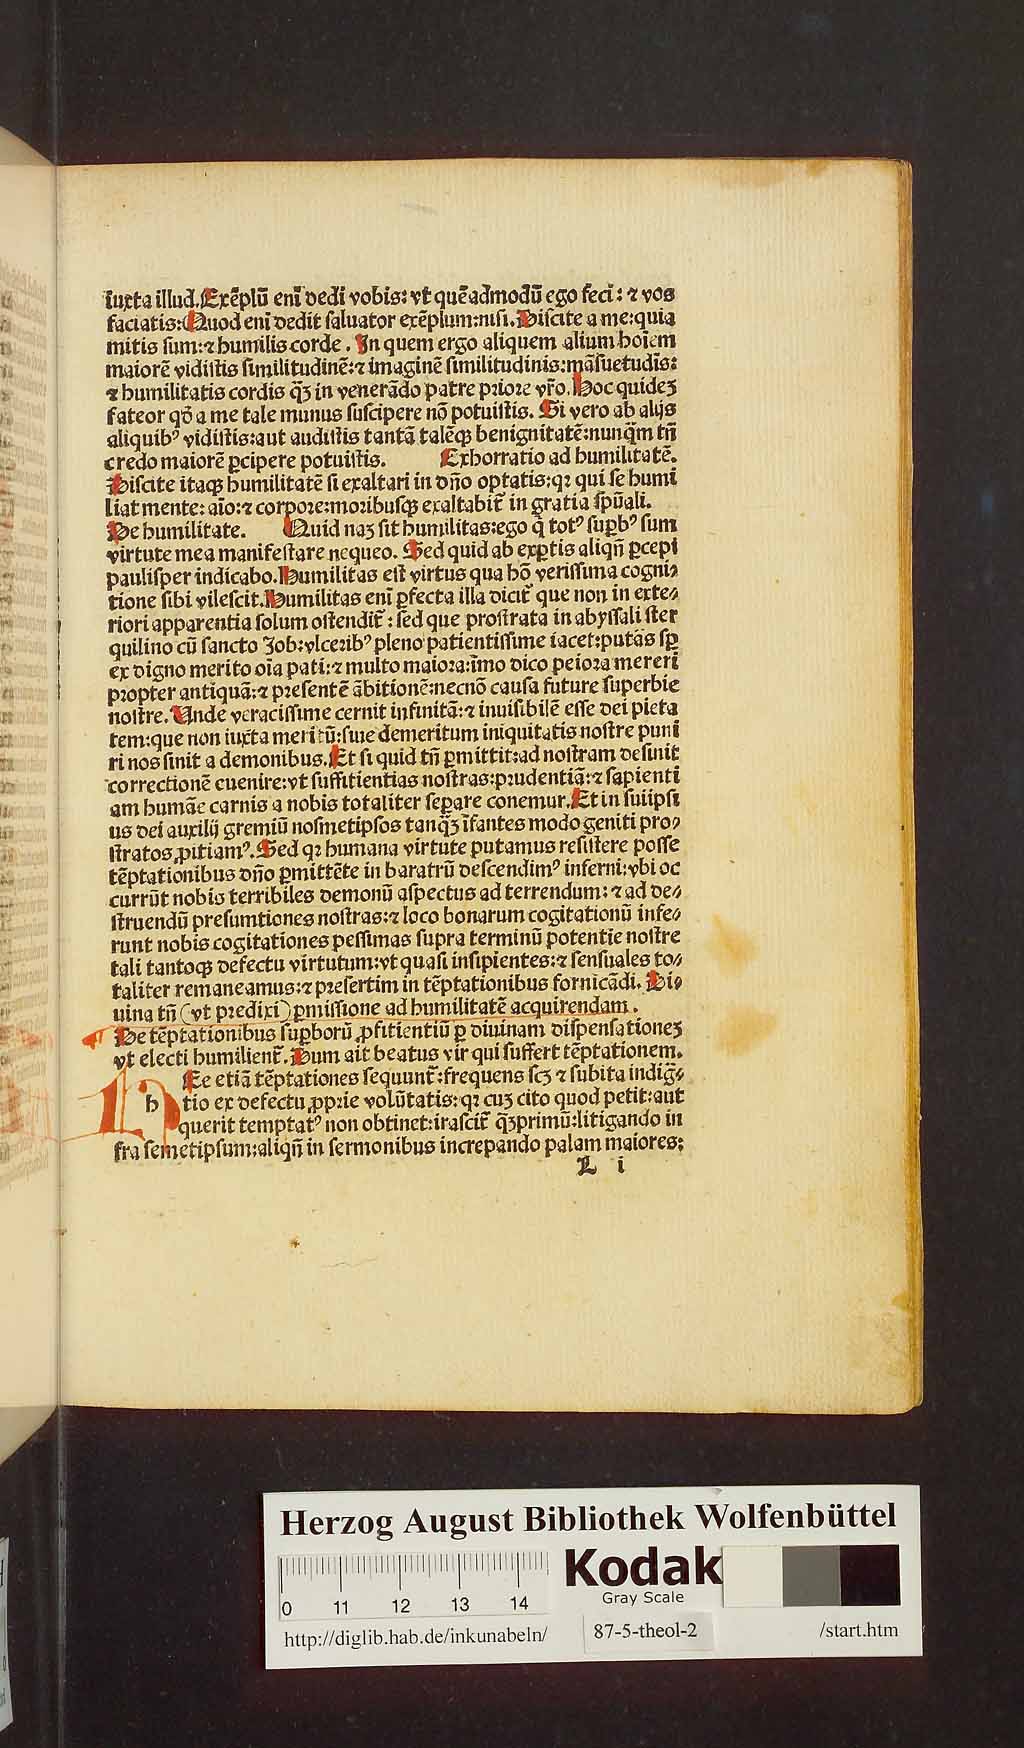 iuxta illud. Exēplū eni̅ dedi vobis: vt quēadmodū ego feci: ⁊ vos
faciatis: Quod eni̅ dedit saluator exēplum: nisi. Discite a me: quia
mitis sum: ⁊ humilis corde. In quem ergo aliquem alium hoīem
maiorē vidistis similitudinē: ⁊ imaginē similitudinis: māsuetudīs:
⁊ humilitatis cordis q̄ꝫ in venerādo patre priore vr̄o. Hoc quideꝫ
fateor qď a me tale munus suscipere nō potuistis. Si vero ab alijs
aliquibꝰ vidistis: aut audistis tantā talēqꝫ benignitatē: nunq̄m tn̄
credo maiorē ꝑcipere potuistis. Exhorratio ad humilitatē.
Discite itaqꝫ humilitatē si exaltari in dn̄o optatis: qꝛ qui se humi
liat mente: aīo: ⁊ corpore: moribusqꝫ exaltabit᷑ in gratia spūali.
De humilitate. Quid naꝫ sit humilitas: ego q̄ totꝰ suꝑbꝰ sum
virtute mea manifestare nequeo. Sed quid ab exꝑtis aliqn̄ ꝑcepi
paulisper indicabo. Humilitas est virtus qua hō verissima cogni⸗
tione sibi vilescit. Humilitas eni̅ ꝑfecta illa dicit᷑ que non in exte⸗
riori apparentia solum ostendit᷑: sed que prostrata in abyssali ster
quilino cū sancto Job: vlceribꝰ pleno patientissime iacet: putās sꝑ
ex digno merito oīa pati: ⁊ multo maiora: īmo dico peiora mereri
propter antiquā: ⁊ presentē ābitionē: necnō causa future superbie
nostre. Unde veracissime cernit infinitā: ⁊ inuisibilē esse dei pieta
tem: que non iuxta meritū: siue demeritum iniquitatis nostre puni
ri nos sinit a demonibus. Et si quid tn̄ ꝑmittit: ad nostram desinit
correctionē euenire: vt suffitientias nostras: prudentiā: ⁊ sapienti
am humāe carnis a nobis totaliter seꝑare conemur. Et in suiipsi
us dei auxilij gremiū nosmetipsos tanq̄ꝫ īfantes modo geniti pro⸗
stratos ꝓpitiamꝰ. Sed qꝛ humana virtute putamus resistere posse
tēptationibus dn̄o ꝑmittēte in baratrū descendimꝰ inferni: vbi oc
currūt nobis terribiles demonū aspectus ad terrendum: ⁊ ad de⸗
struendū presumtiones nostras: ⁊ loco bonarum cogitationū infe⸗
runt nobis cogitationes pessimas supra terminū potentie nostre
tali tantoqꝫ defectu virtutum: vt quasi insipientes: ⁊ sensuales to⸗
taliter remaneamus: ⁊ presertim in tēptationibus fornicādi. Di⸗
uina tn̄ (vt predixi) ꝑmissione ad humilitatē acquirendam.
De tēptationibus suꝑborū ꝓfitientiū ꝑ diuinam dispensationeꝫ
vt electi humilient᷑. Dum ait beatus vir qui suffert tēptationem.
h Ee etiā tēptationes sequunt᷑: frequens scꝫ ⁊ subita indig⸗
tio ex defectu ꝓprie volūtatis: qꝛ cuꝫ cito quod petit: aut
querit temptatꝰ non obtinet: irascit᷑ q̄ꝫprimū: litigando in
fra semetipsum: aliqn̄ in sermonibus increpando palam maiores:
L i
Herzog August Bibliothek Wolfenbüttel
Kodak
Gray Scale
0 11 12 13 14
http://diglib.hab.de/inkunabeln/ 87-5-theol-2 /start.htm